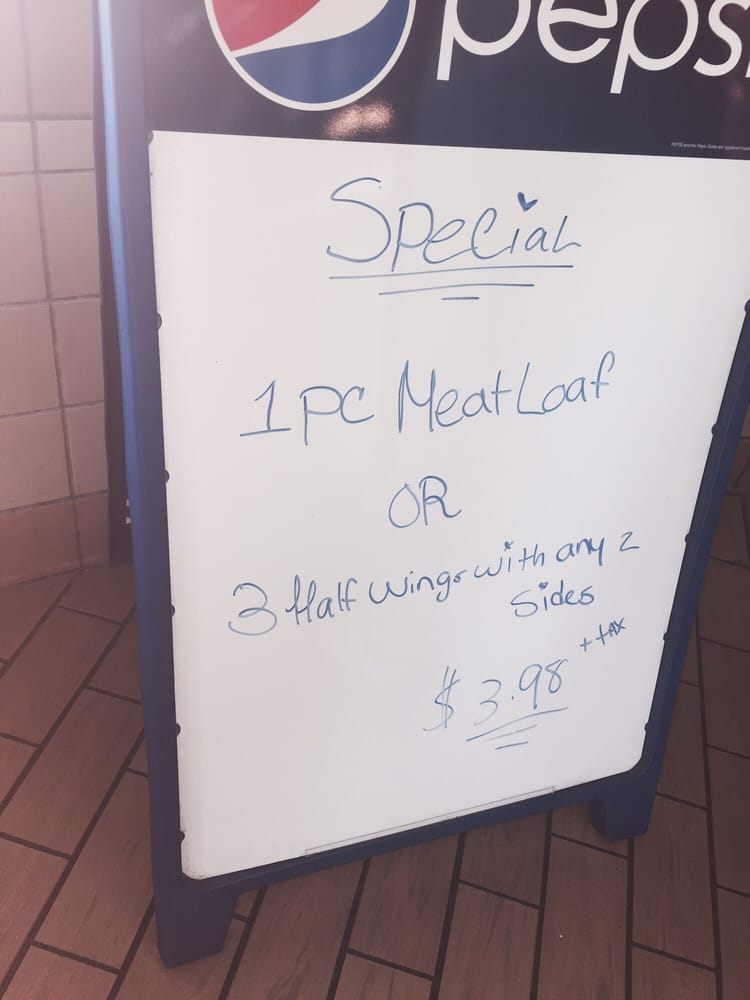 pepsi
Special
1 PC Meat Loaf
OR
3 Half wings with any 2
Sides
+ tAX
$ 3.98